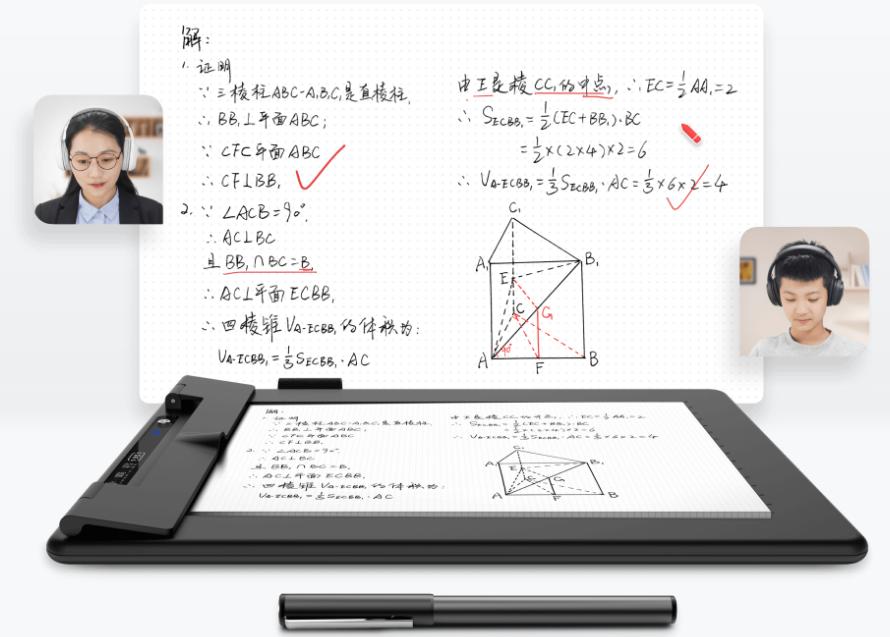 解：
1. 证明
∵ 三棱柱ABC-A₁B₁C₁是直棱柱,
∴ BB₁⊥平面ABC;
∵ CFC平面ABC
∴ CF⊥BB₁
2. ∵ ∠ACB=90°.
∴ AC⊥BC
且 BB₁∩BC=B,
∴ AC⊥平面ECBB₁
∴ 四棱锥VA-ECBB₁的体积为:
VA-ECBB₁=⅓SECBB₁·AC
由E是棱CC₁的中点, ∴ EC=½AA₁=2
∴ SECBB₁=½(EC+BB₁)·BC
=½×(2×4)×2=6
∴ VA-ECBB₁=⅓SECBB₁·AC=⅓×6×2=4
C₁
A₁ B₁
E
C G
A F B
解：
1. 证明
∵ 三棱柱ABC-A₁B₁C₁是直棱柱,
∴ BB₁⊥平面ABC;
∵ CFC平面ABC
∴ CF⊥BB₁
2. ∵ ∠ACB=90°.
∴ AC⊥BC
且 BB₁∩BC=B,
∴ AC⊥平面ECBB₁
∴ 四棱锥VA-ECBB₁的体积为:
VA-ECBB₁=⅓SECBB₁·AC
由E是棱CC₁的中点, ∴ EC=½AA₁=2
∴ SECBB₁=½(EC+BB₁)·BC
=½×(2×4)×2=6
∴ VA-ECBB₁=⅓SECBB₁·AC=⅓×6×2=4
C₁
A₁ B₁
E
C G
A F B